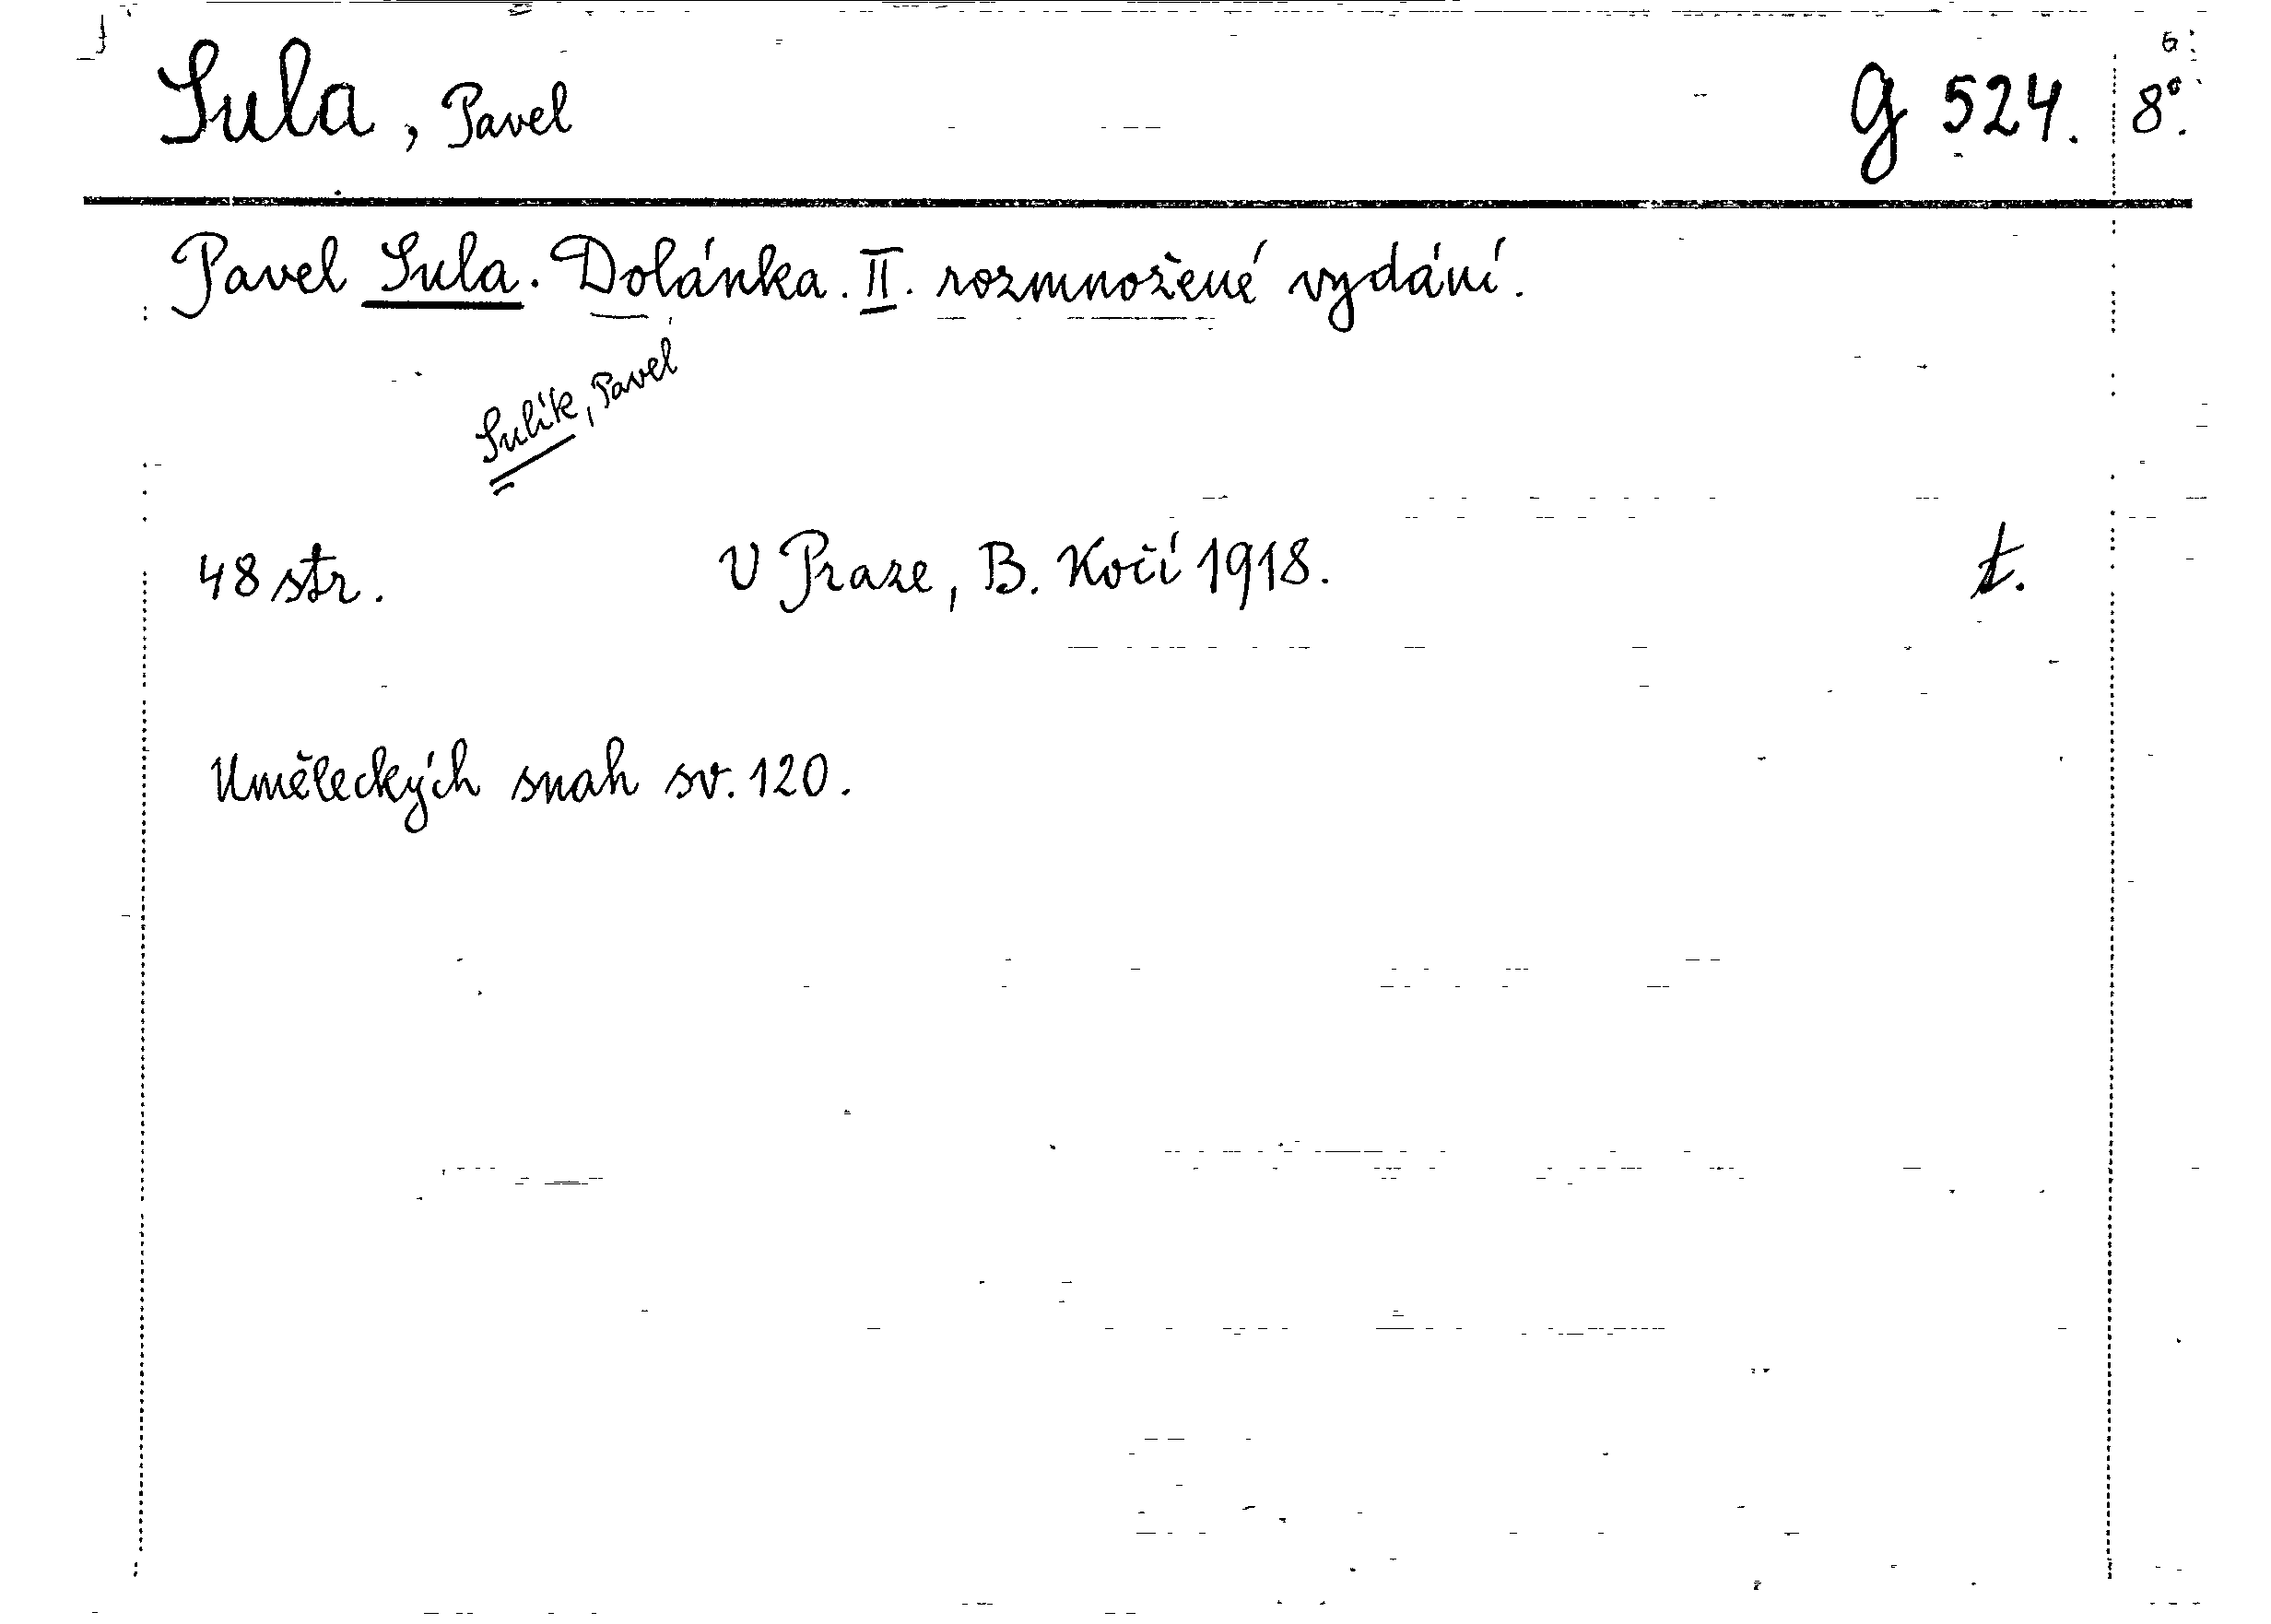 Sula, Pavel G 524. 8°.
Pavel Sula. Dolánka. II. rozmnožené vydání.
Sulík, Pavel
48 str. V Praze, B. Kočí 1918. t.
Uměleckých snah sv. 120.